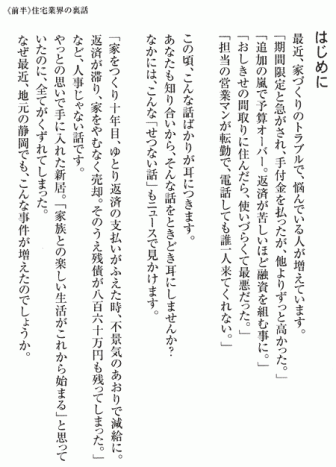 〈前半〉住宅業界の裏話
はじめに
最近、家づくりのトラブルで、悩んでいる人が増えています。
「期間限定と急がされ、手付金を払ったが、他よりずっと高かった。」
「追加の嵐で予算オーバー。返済が苦しいほど融資を組む事に。」
「おしきせの間取りに住んだら、使いづらくて最悪だった。」
「担当の営業マンが転勤で、電話しても誰一人来てくれない。」
この頃、こんな話ばかりが耳につきます。
あなたも知り合いから、そんな話をときどき耳にしませんか?
なかには、こんな「せつない話」もニュースで見かけます。
「家をつくり十年目、ゆとり返済の支払いがふえた時、不景気のあおりで減給に。
返済が滞り、家をやむなく売却。そのうえ残債が八百六十万円も残ってしまった。」
など、人事じゃない話です。
やっとの思いで手に入れた新居。「家族との楽しい生活がこれから始まる」と思って
いたのに、全てがくずれてしまった。
なぜ最近、地元の静岡でも、こんな事件が増えたのでしょうか。